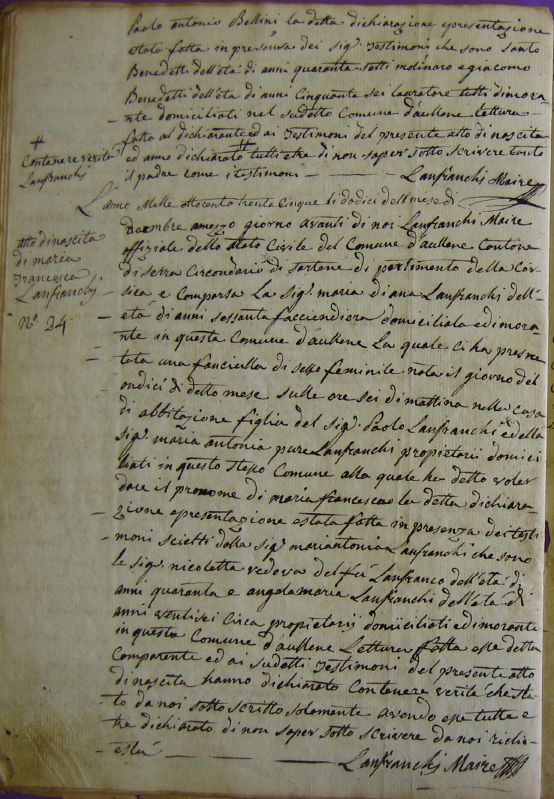 Paolo antonio Bellini la detta dichiarazione e presentazione
e stata fatta in presenza dei sig.i Testimoni che sono Santo
Benedetti dell'età di anni quaranta sette molinaro e giacomo
Benedetti dell'età di anni Cinquanta sei lavoratore tutti dimora
nte domiciliati nel sudetto Comune d'aullene lettura
fatta al dichiarante ed ai Testimoni del presente atto di nascita
ed anno dichiarato tutti e tre di non saper sotto scrivere tanto
il padre come i testimoni Lanfranchi Maire
#
Contenere verità
Lanfranchi
L'anno Mille ottocento trenta Cinque li dodici del mese di
Atto di nascita
di maria
Francesca
Lanfranchi
N.o 24.
novembre a mezzo giorno avanti di noi Lanfranchi Maire
offiziale dello Stato Civile del Comune d'aullene Cantone
di Serra Circondario di Sartene dipartimento della Cor
sica e Comparsa La sig.a maria diana Lanfranchi dell'
età di anni sessanta faccendiera domiciliata e dimora
nte in questa Comune d'aullene La quale ci ha presne
tata una fanciulla di sesso feminile nata il giorno del
ondici di detto mese sulle ore sei di mattina nella casa
di abbitazione figlia del sig.r Paolo Lanfranchi e della
sig.a maria antonia pure Lanfranchi propietarii domici
liati in questo stesso Comune alla quale ha detto voler
dare il pronome di maria francesca e la detta dichiara
zione e presentazione e stata fatta in presenza dei testi
moni scietti dalla sig.a mariantonia Lanfranchi che sono
le sig.e nicoletta vedova del fù Lanfranco dell'età di
anni quaranta e angela maria Lanfranchi dell'età di
anni ventisei Circa propietarij domiciliati e dimorante
in questa Comune d'aullene Lettura fatta esse detta
Comparente ed ai sudetti Testimoni del presente atto
di nascita hanno dichiarato Contenere verità che sta
to da noi sotto scritto solamente avondo esse tutte e
tre dichiarato di non saper sotto scrivere da noi richi
esta
Lanfranchi Maire